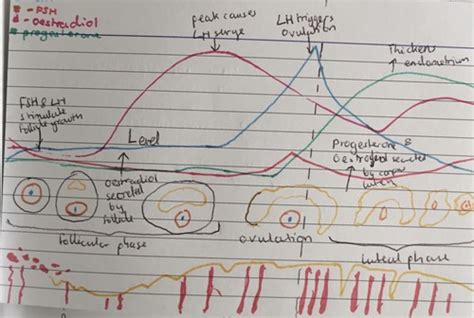 - FSH
- oestradiol
progesterone
peak causes
LH surge
LH triggers
ovulation
Thickens
endometrium
FSH & LH
stimulate
follicle growth
Level
oestradiol
secreted
by
follicle
Progesterone &
Oestrogen secreted
by corpus
luteum
follicular phase
ovulation
luteal phase